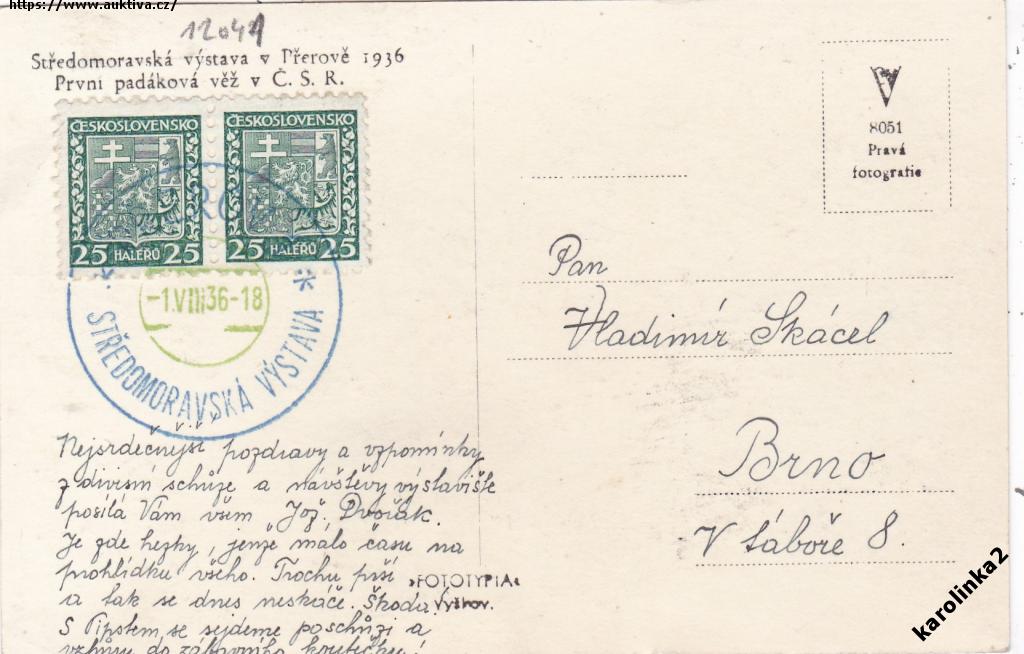 https://www.auktiva.cz/
12041
Středomoravská výstava v Přerově 1936
První padáková věž v Č. S. R.
ČESKOSLOVENSKO ČESKOSLOVENSKO
25 HALÉŘŮ 25 25 HALÉŘŮ 25
-1.VIII36-18
* STŘEDOMORAVSKÁ VÝSTAVA *
Nejsrdečnější pozdravy a vzpomínky
z divisní schůze a návštěvy výstaviště
posílá Vám všem Jož. Dvořák.
Je zde hezky, jenže málo času na
prohlídku všeho. Trochu prší
a tak se dnes neskáče. Škoda!
S se sejdeme po schůzi a
vzhůru do zábavního koutičku!
»FOTOTYPIA«
Vyškov.
8051
Pravá
fotografie
Pan
Vladimír Skácel
Brno
V táboře 8.
karolinka2